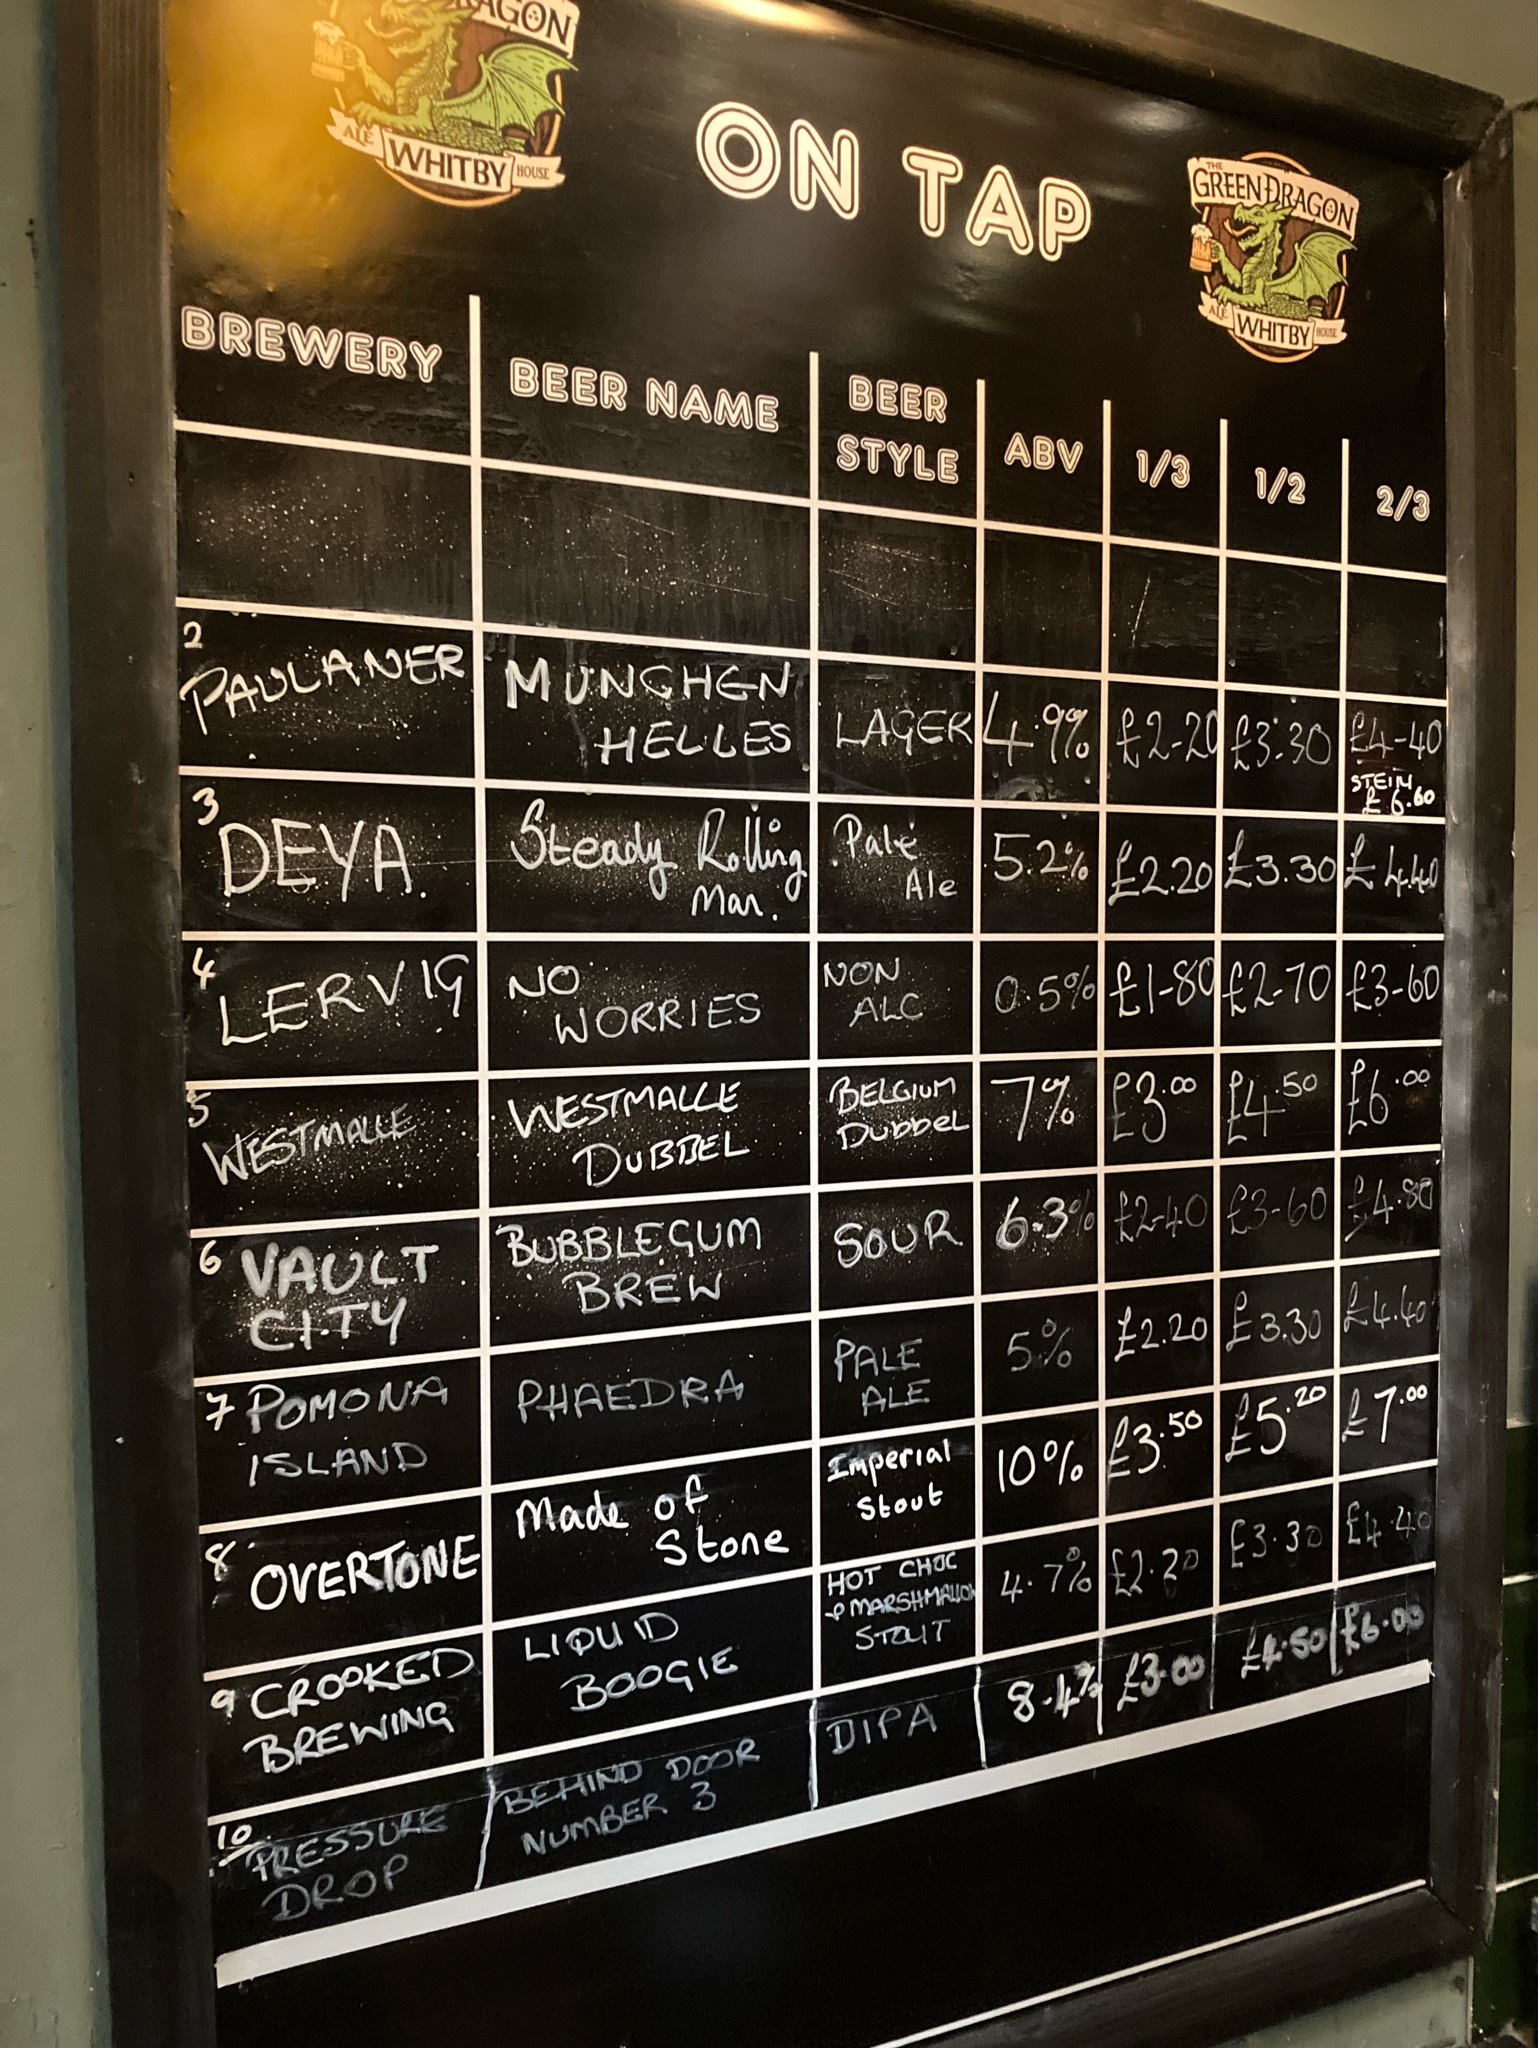 RAGON
ALE WHITBY HOUSE
ON TAP
THE
GREEN DRAGON
ALE WHITBY HOUSE
BREWERY BEER NAME BEER STYLE ABV 1/3 1/2 2/3
2 PAULANER MUNCHEN HELLES LAGER 4.9% £2-20 £3.30 £4-40
STEIN £6.60
3 DEYA. Steady Rolling Man. Pale Ale 5.2% £2.20 £3.30 £4.40
4 LERVIG NO WORRIES NON ALC 0.5% £1-80 £2-70 £3-60
5 WESTMALLE WESTMALLE DUBBEL BELGIUM DUBBEL 7% £3.00 £4.50 £6.00
6 VAULT CITY BUBBLEGUM BREW SOUR 6.3% £2-40 £3-60 £4.80
7 POMONA ISLAND PHAEDRA PALE ALE 5% £2.20 £3.30 £4.40
8 OVERTONE Made of Stone Imperial Stout 10% £3.50 £5.20 £7.00
9 CROOKED BREWING LIQUID BOOGIE HOT CHOC & MARSHMALLOW STOUT 4.7% £2.20 £3.30 £4.40
10 PRESSURE DROP BEHIND DOOR NUMBER 3 DIPA 8.4% £3.00 £4.50 £6.00